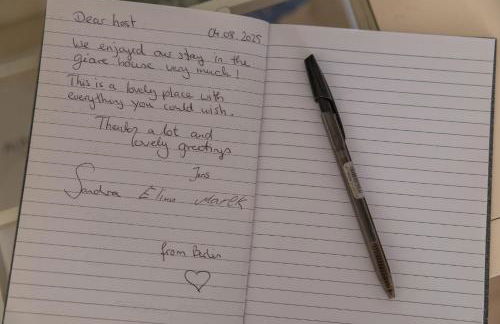 Dear host
04.08.2025
We enjoyed our stay in the
giave house very much!
This is a lovely place with
everything you could wish.
Thanks a lot and
lovely greetings
Jens
Sandra Elina Marek
from Berlin